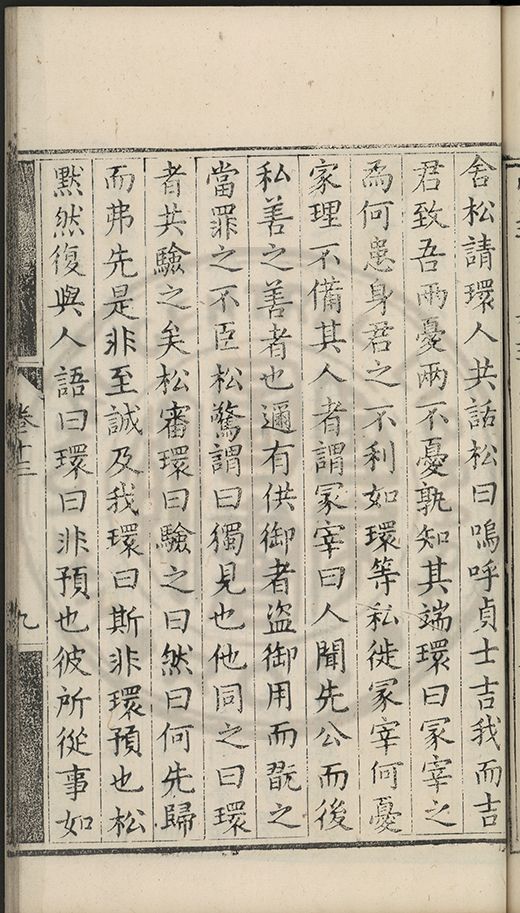 舍松請環人共話松曰嗚呼貞士吉我而吉
君致吾兩憂兩不憂孰知其端環曰冢宰之
爲何患身君之不利如環等私徙冢宰何憂
家理不備其人者謂冢宰曰人聞先公而後
私善之善者也邇有供御者盜御用而翫之
當罪之不臣松驚謂曰獨見也他同之曰環
者共驗之矣松審環曰驗之曰然曰何先歸
而弗先是非至誠及我環曰斯非環預也松
默然復與人語曰環曰非預也彼所從事如
卷十三
九